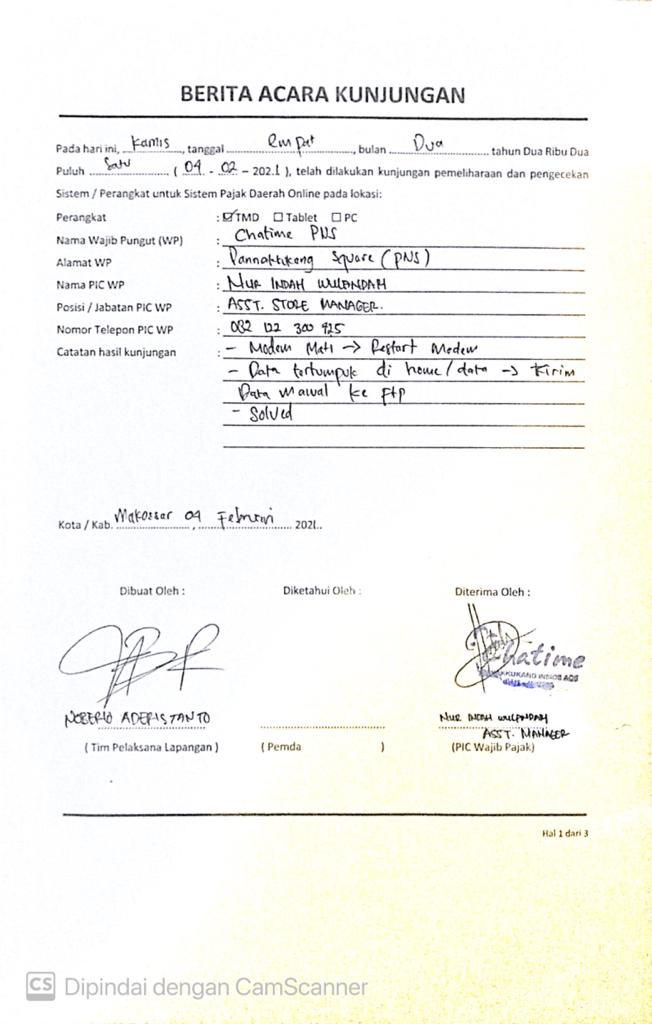 BERITA ACARA KUNJUNGAN
Pada hari ini, Kamis, tanggal Empat, bulan Dua tahun Dua Ribu Dua
Puluh Satu ( 04 - 02 - 2021 ), telah dilakukan kunjungan pemeliharaan dan pengecekan
Sistem / Perangkat untuk Sistem Pajak Daerah Online pada lokasi:
Perangkat : ☑TMD ☐Tablet ☐PC
Nama Wajib Pungut (WP) : Chatime PNS
Alamat WP : Pannakkukang Square (PNS)
Nama PIC WP : NUR INDAH WULANDAH
Posisi / Jabatan PIC WP : ASST. STORE MANAGER.
Nomor Telepon PIC WP : 082 122 300 925
Catatan hasil kunjungan : - Modem Mati → Restart Modem
- Data tertumpuk di home/data → Kirim
Data manual ke ftp
- Solved
Kota / Kab. Makassar 04 Februari 2021..
Dibuat Oleh : Diketahui Oleh : Diterima Oleh :
Chatime
NOBERIO ADERISTANTO NUR INDAH WULANDAH
ASST. MANAGER
( Tim Pelaksana Lapangan ) ( Pemda ) (PIC Wajib Pajak)
Hal 1 dari 3
CS Dipindai dengan CamScanner